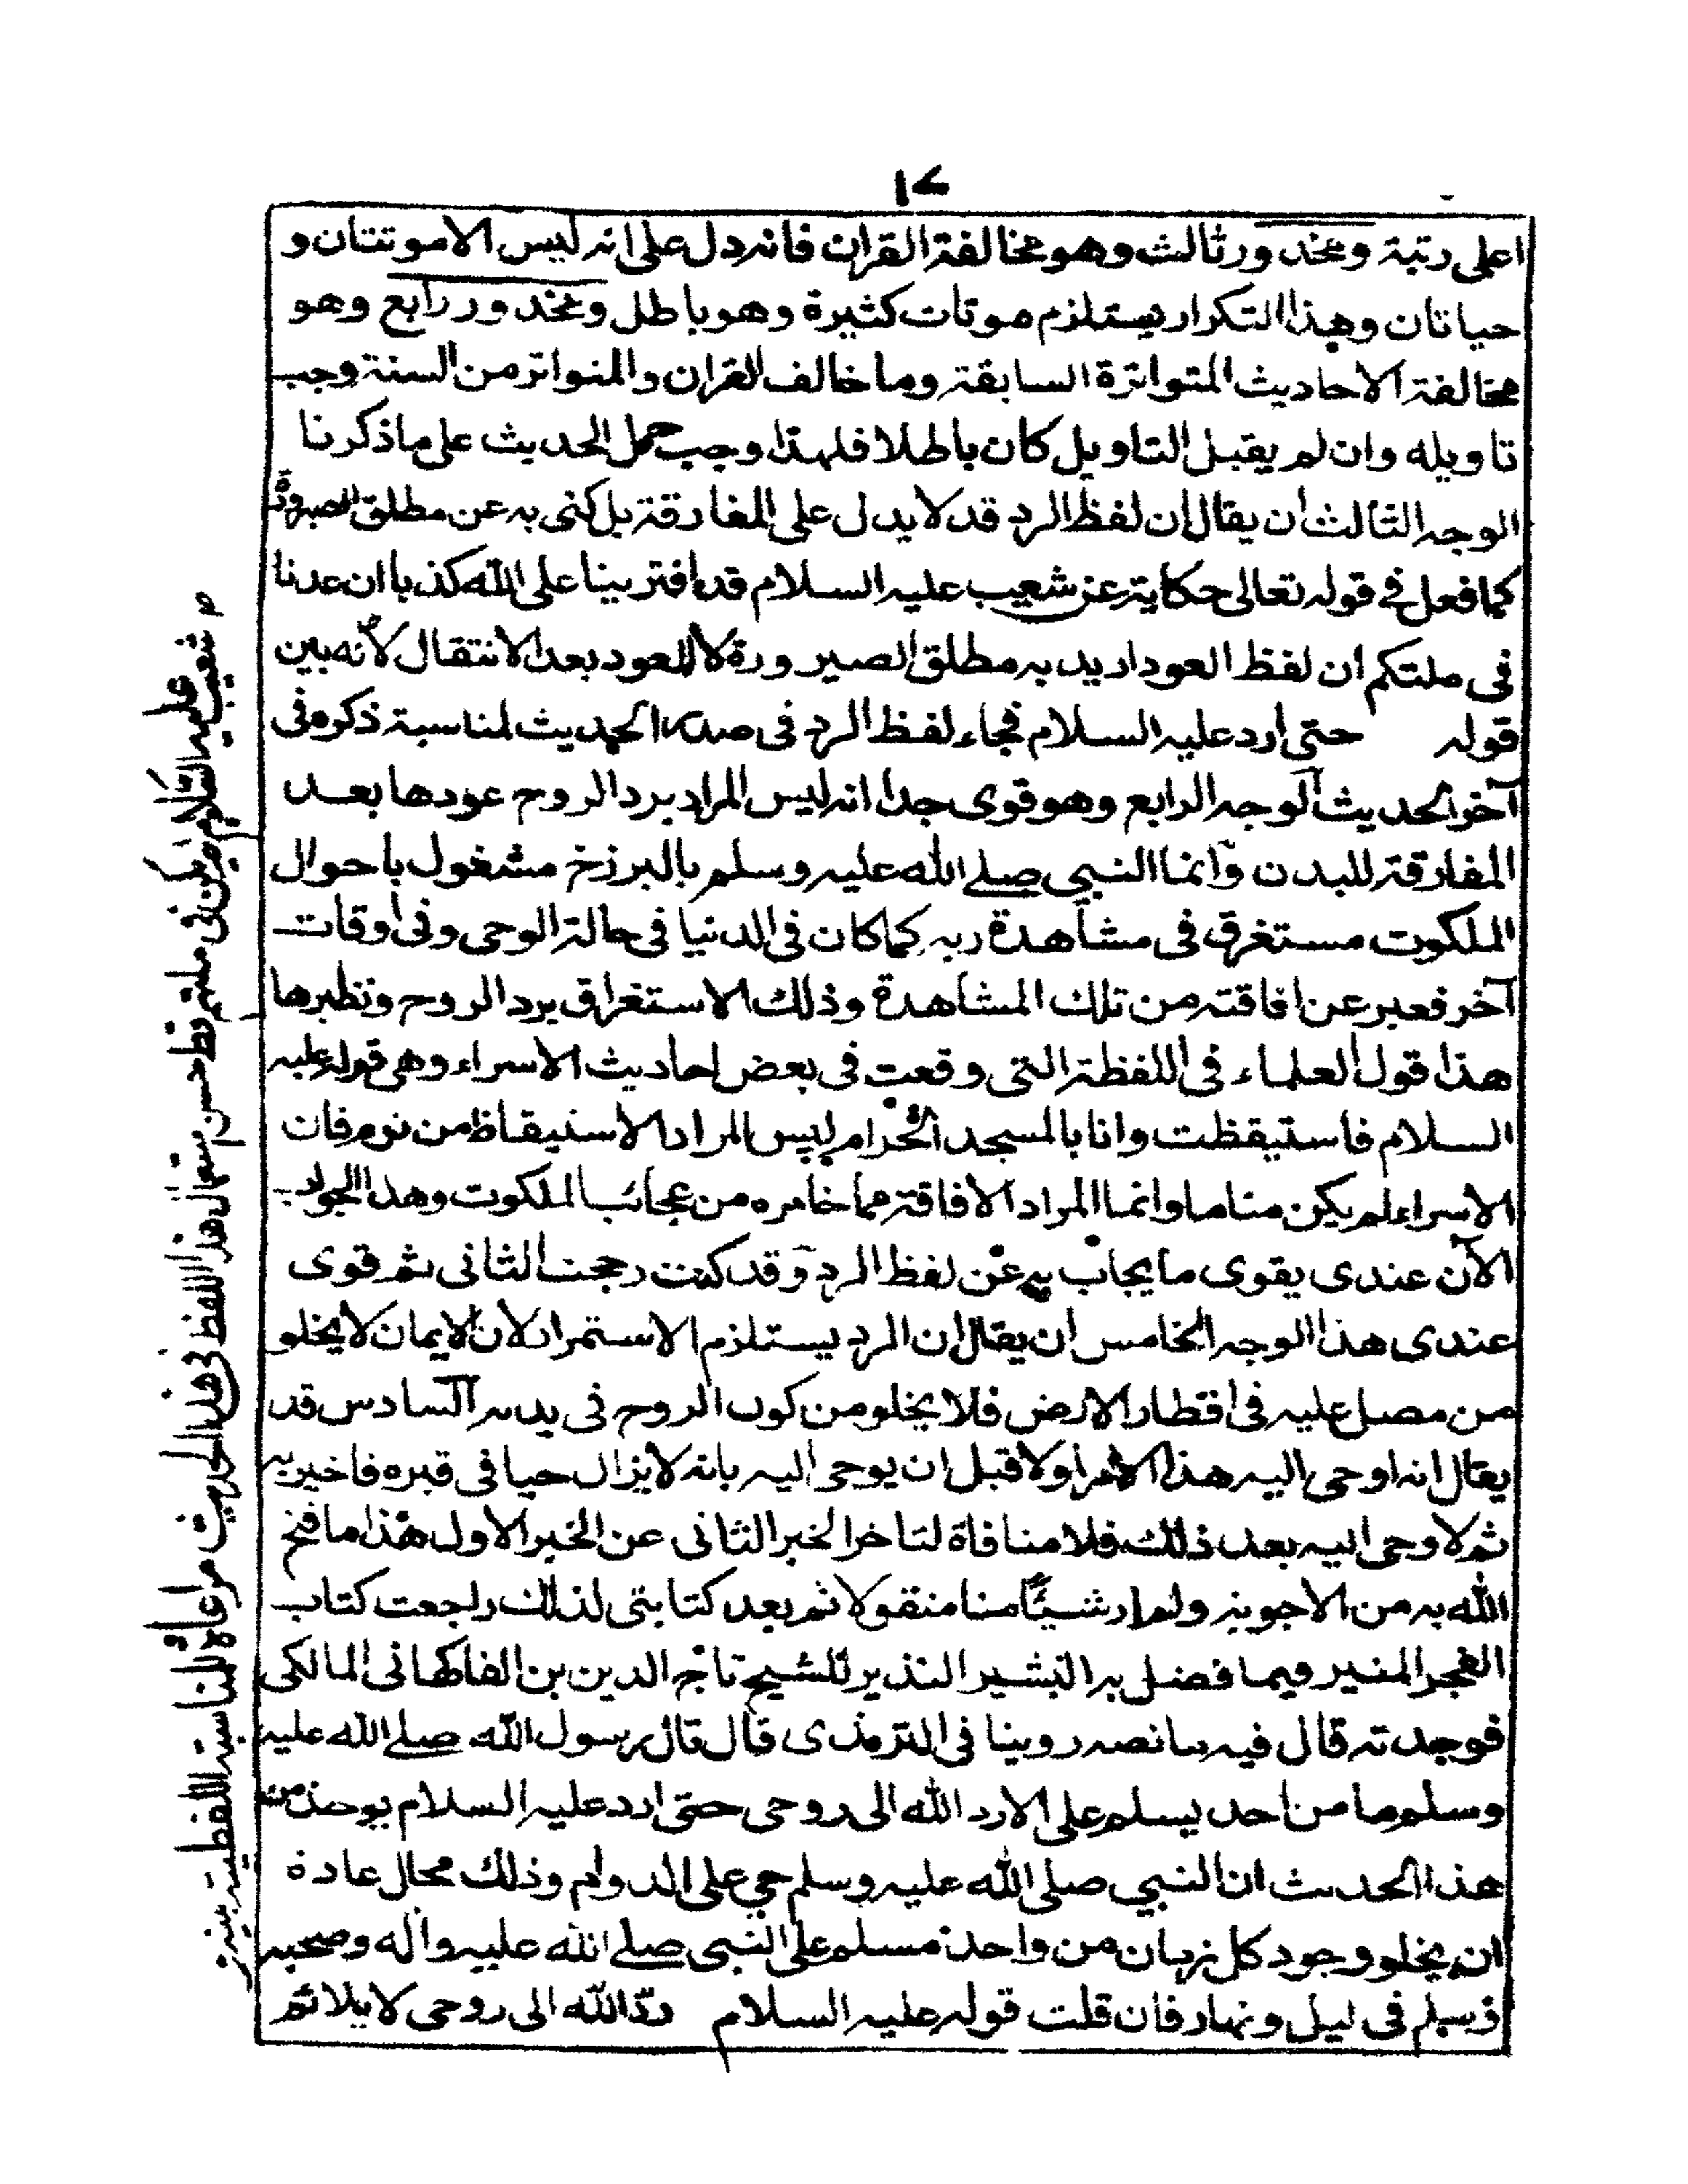 ١٧
اعلى رتبة ومحذور ثالث وهو مخالفة القران فانه دل على انه ليس الا موتتان و
حياتان وهذا التكرار يستلزم موتات كثيرة وهو باطل ومحذور رابع وهو
مخالفة الاحاديث المتواترة السابقة وما خالف القران والمتواتر من السنة وجب
تاويله وان لم يقبل التاويل كان باطلا فلهذا وجب حمل الحديث على ما ذكرنا
الوجه الثالث ان يقال ان لفظ الرد قد لا يدل على المفارقة بل كنى به عن مطلق الصيرورة
كما فعل في قوله تعالى حكاية عن شعيب عليه السلام قد افترينا على الله كذبا ان عدنا
في ملتكم ان لفظ العود اريد به مطلق الصيرورة لا العود بعد الانتقال لأنه بين
قوله حتى ارد عليه السلام فجاء لفظ الرد في صدر الحديث لمناسبة ذكره في
آخر الحديث الوجه الرابع وهو قوى جدا انه ليس المراد برد الروح عودها بعد
المفارقة للبدن وانما النبي صلے الله عليه وسلم بالبرزخ مشغول باحوال
الملكوت مستغرق في مشاهدة ربه كما كان في الدنيا في حالة الوحي وفي اوقات
آخر فعبر عن افاقته من تلك المشاهدة وذلك الاستغراق برد الروح ونظيرها
هذا قول العلماء في اللفظة التي وقعت في بعض احاديث الاسراء وهى قوله عليه
السلام فاستيقظت وانا بالمسجد الحرام ليس المراد الاستيقاظ من نوم فان
الاسراء لم يكن مناما وانما المراد الافاقة مما خامره من عجائب الملكوت وهذا الجواب
الآن عندى يقوى ما يجاب به عن لفظ الرد وقد كنت رجحت الثاني ثم قوى
عندى هذا الوجه الخامس ان يقال ان الرد يستلزم الاستمرار لان الايمان لا يخلو
من مصل عليه في اقطار الارض فلا يخلو من كون الروح في بدنه السادس قد
يقال انه اوحى اليه هذا الامر اولا قبل ان يوحى اليه بانه لا يزال حيا في قبره فاخبر به
ثم لا وحى اليه بعد ذلك فلا منافاة لتاخر الخبر الثاني عن الخبر الاول هذا ما فتح
الله به من الاجوبة ولم ار شيئا منا منقولا ثم بعد كتابتى لذلك راجعت كتاب
الفجر المنير فيما فضل به البشير النذير للشيخ تاج الدين بن الفاكهانى المالكى
فوجدته قال فيه ما نصه روينا في الترمذى قال قال رسول الله صلے الله عليه
وسلم ما من احد يسلم على الا رد الله الى روحى حتى ارد عليه السلام يوخذ من
هذا الحديث ان النبي صلى الله عليه وسلم حي على الدوام وذلك محال عادة
ان يخلو وجود كل زمان من واحد مسلم على النبي صلے الله عليه واله وصحبه
وسلم في ليل ونهار فان قلت قوله عليه السلام رد الله الى روحى لا يلائم
شعيب عليه السلام لم يكن في ملتهم قط حسن استعمال هذا اللفظ في هذا الحديث مراعاة المناسبة اللفظية بينه